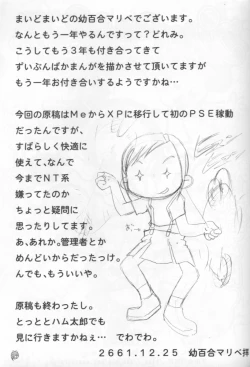 まいどまいどの幼百合マリベでございます。
なんともう一年やるんですって？どれみ。
こうしてもう３年も付き合ってきて
ずいぶんばかまんがを描かさせて頂いてますが
もう一年お付き合いするようですかね…
今回の原稿はＭｅからＸＰに移行して初のＰＳＥ稼動
だったんですが、
すばらしく快適に
使えて、なんで
今までＮＴ系
嫌ってたのか
ちょっと疑問に
思ったりしてます。
あ、あれか。管理者とか
めんどいからだったっけ。
んでも、もういいや。
原稿も終わったし。
とっととハム太郎でも
見に行きますかねぇ… でわでわ。
２６６１.１２.２５ 幼百合マリベ拝